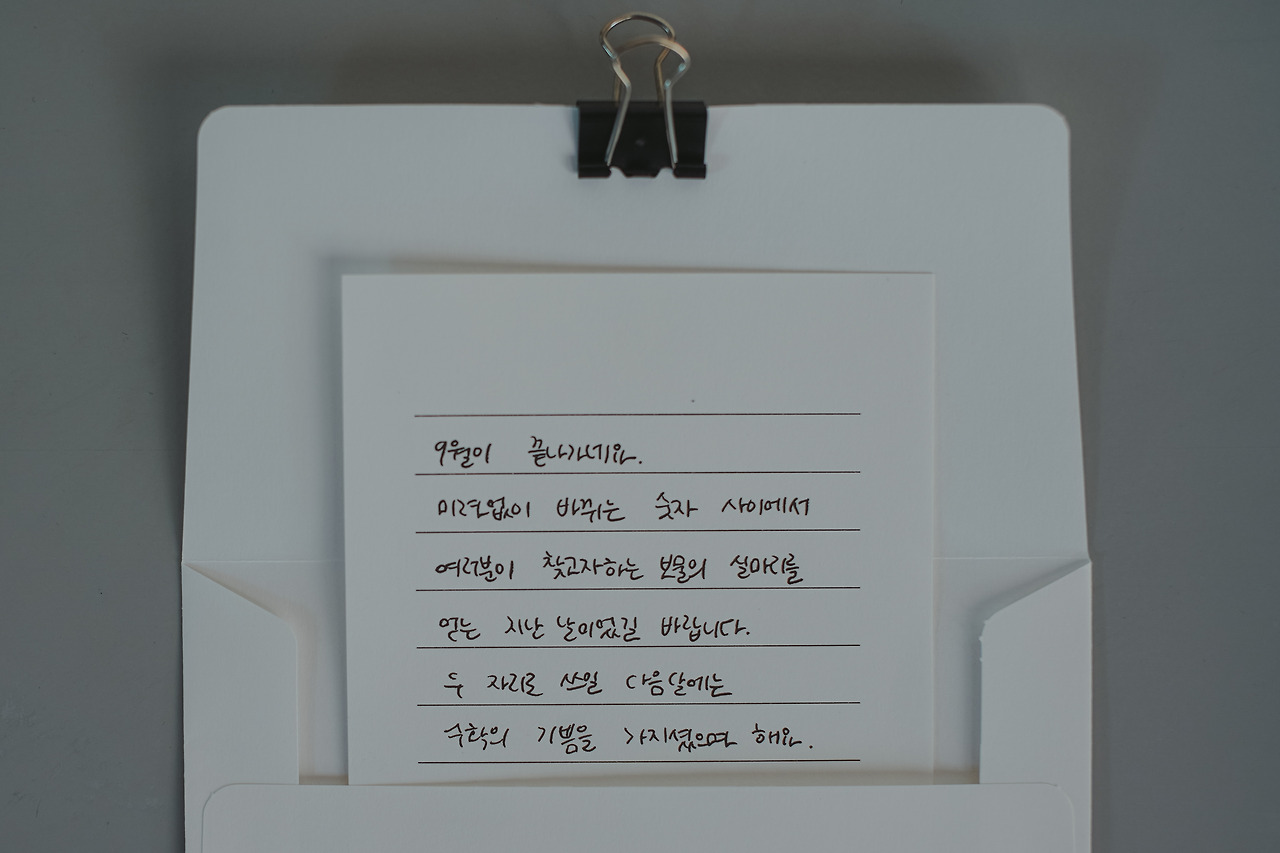 9월이 끝나가네요.
미련없이 바뀌는 숫자 사이에서
여러분이 찾고자하는 보물의 실마리를
얻는 지난 날이었길 바랍니다.
두 자리로 쓰일 다음달에는
수확의 기쁨을 가지셨으면 해요.